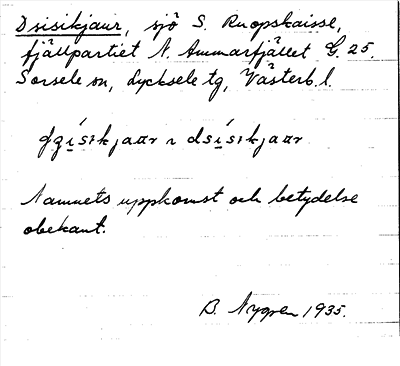 Dsisikjaur, sjö S. Ruopskaisse,
fjällpartiet N. Ammarfjället G. 25.
Sorsele sn, Lycksele tg, Västerb. l.
dʒisikjaur ɿ dsisikjaur
Namnets uppkomst och betydelse
obekant.
B. Nygren 1935.